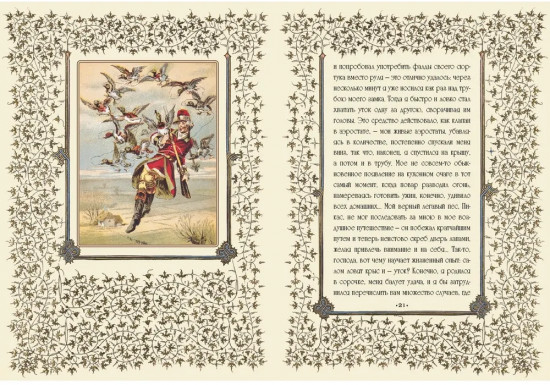 и попробовал употребить фалды своего сюр-
тука вместо руля – это отлично удалось: через
несколько минут я уже носился как раз над тру-
бою моего замка. Тогда я быстро и ловко стал
хватать уток одну за другою, сворачивая им
головы. Это средство действовало, как клапан
в аэростате, – мои живые аэростаты, убавля-
ясь в количестве, постепенно спускали меня
вниз, так что, наконец, я спустился на крышу,
а потом и в трубу. Мое не совсем-то обык-
новенное появление на кухонном очаге в тот
самый момент, когда повар разводил огонь,
намереваясь готовить ужин, конечно, удивило
всех домашних... Мой верный легавый пес, Пи-
кас, не мог последовать за мною в мое воз-
душное путешествие – он побежал кратчайшим
путем и теперь неистово скреб дверь лапами,
желая привлечь внимание и на себя... Так-то,
господа, вот чему научает жизненный опыт: са-
лом ловят крыс и – уток! Конечно, я родился
в сорочке, меня балует удача, и я бы затруд-
нился перечислить вам множество случаев, где
•21•